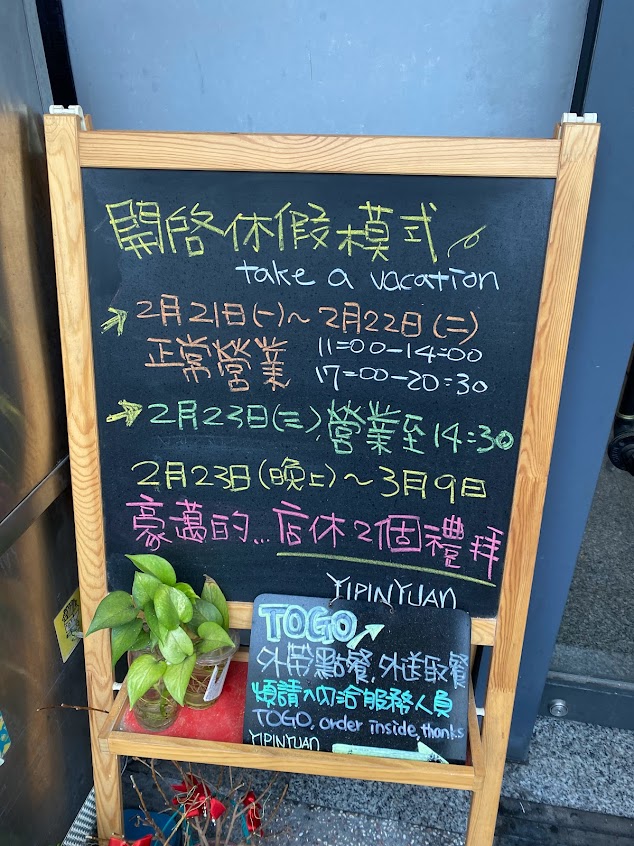 開啓休假模式
take a vacation
2月21日(一)～2月22日(二)
正常營業 11=00-14=00
17=00-20=30
2月23日(三),營業至14=30
2月23日(晚上)～3月9日
豪邁的...店休2個禮拜
YIPINYUAN
TOGO
外帶點餐,外送取餐
煩請入內洽服務人員
TOGO, order inside,thanks
YIPINYUAN